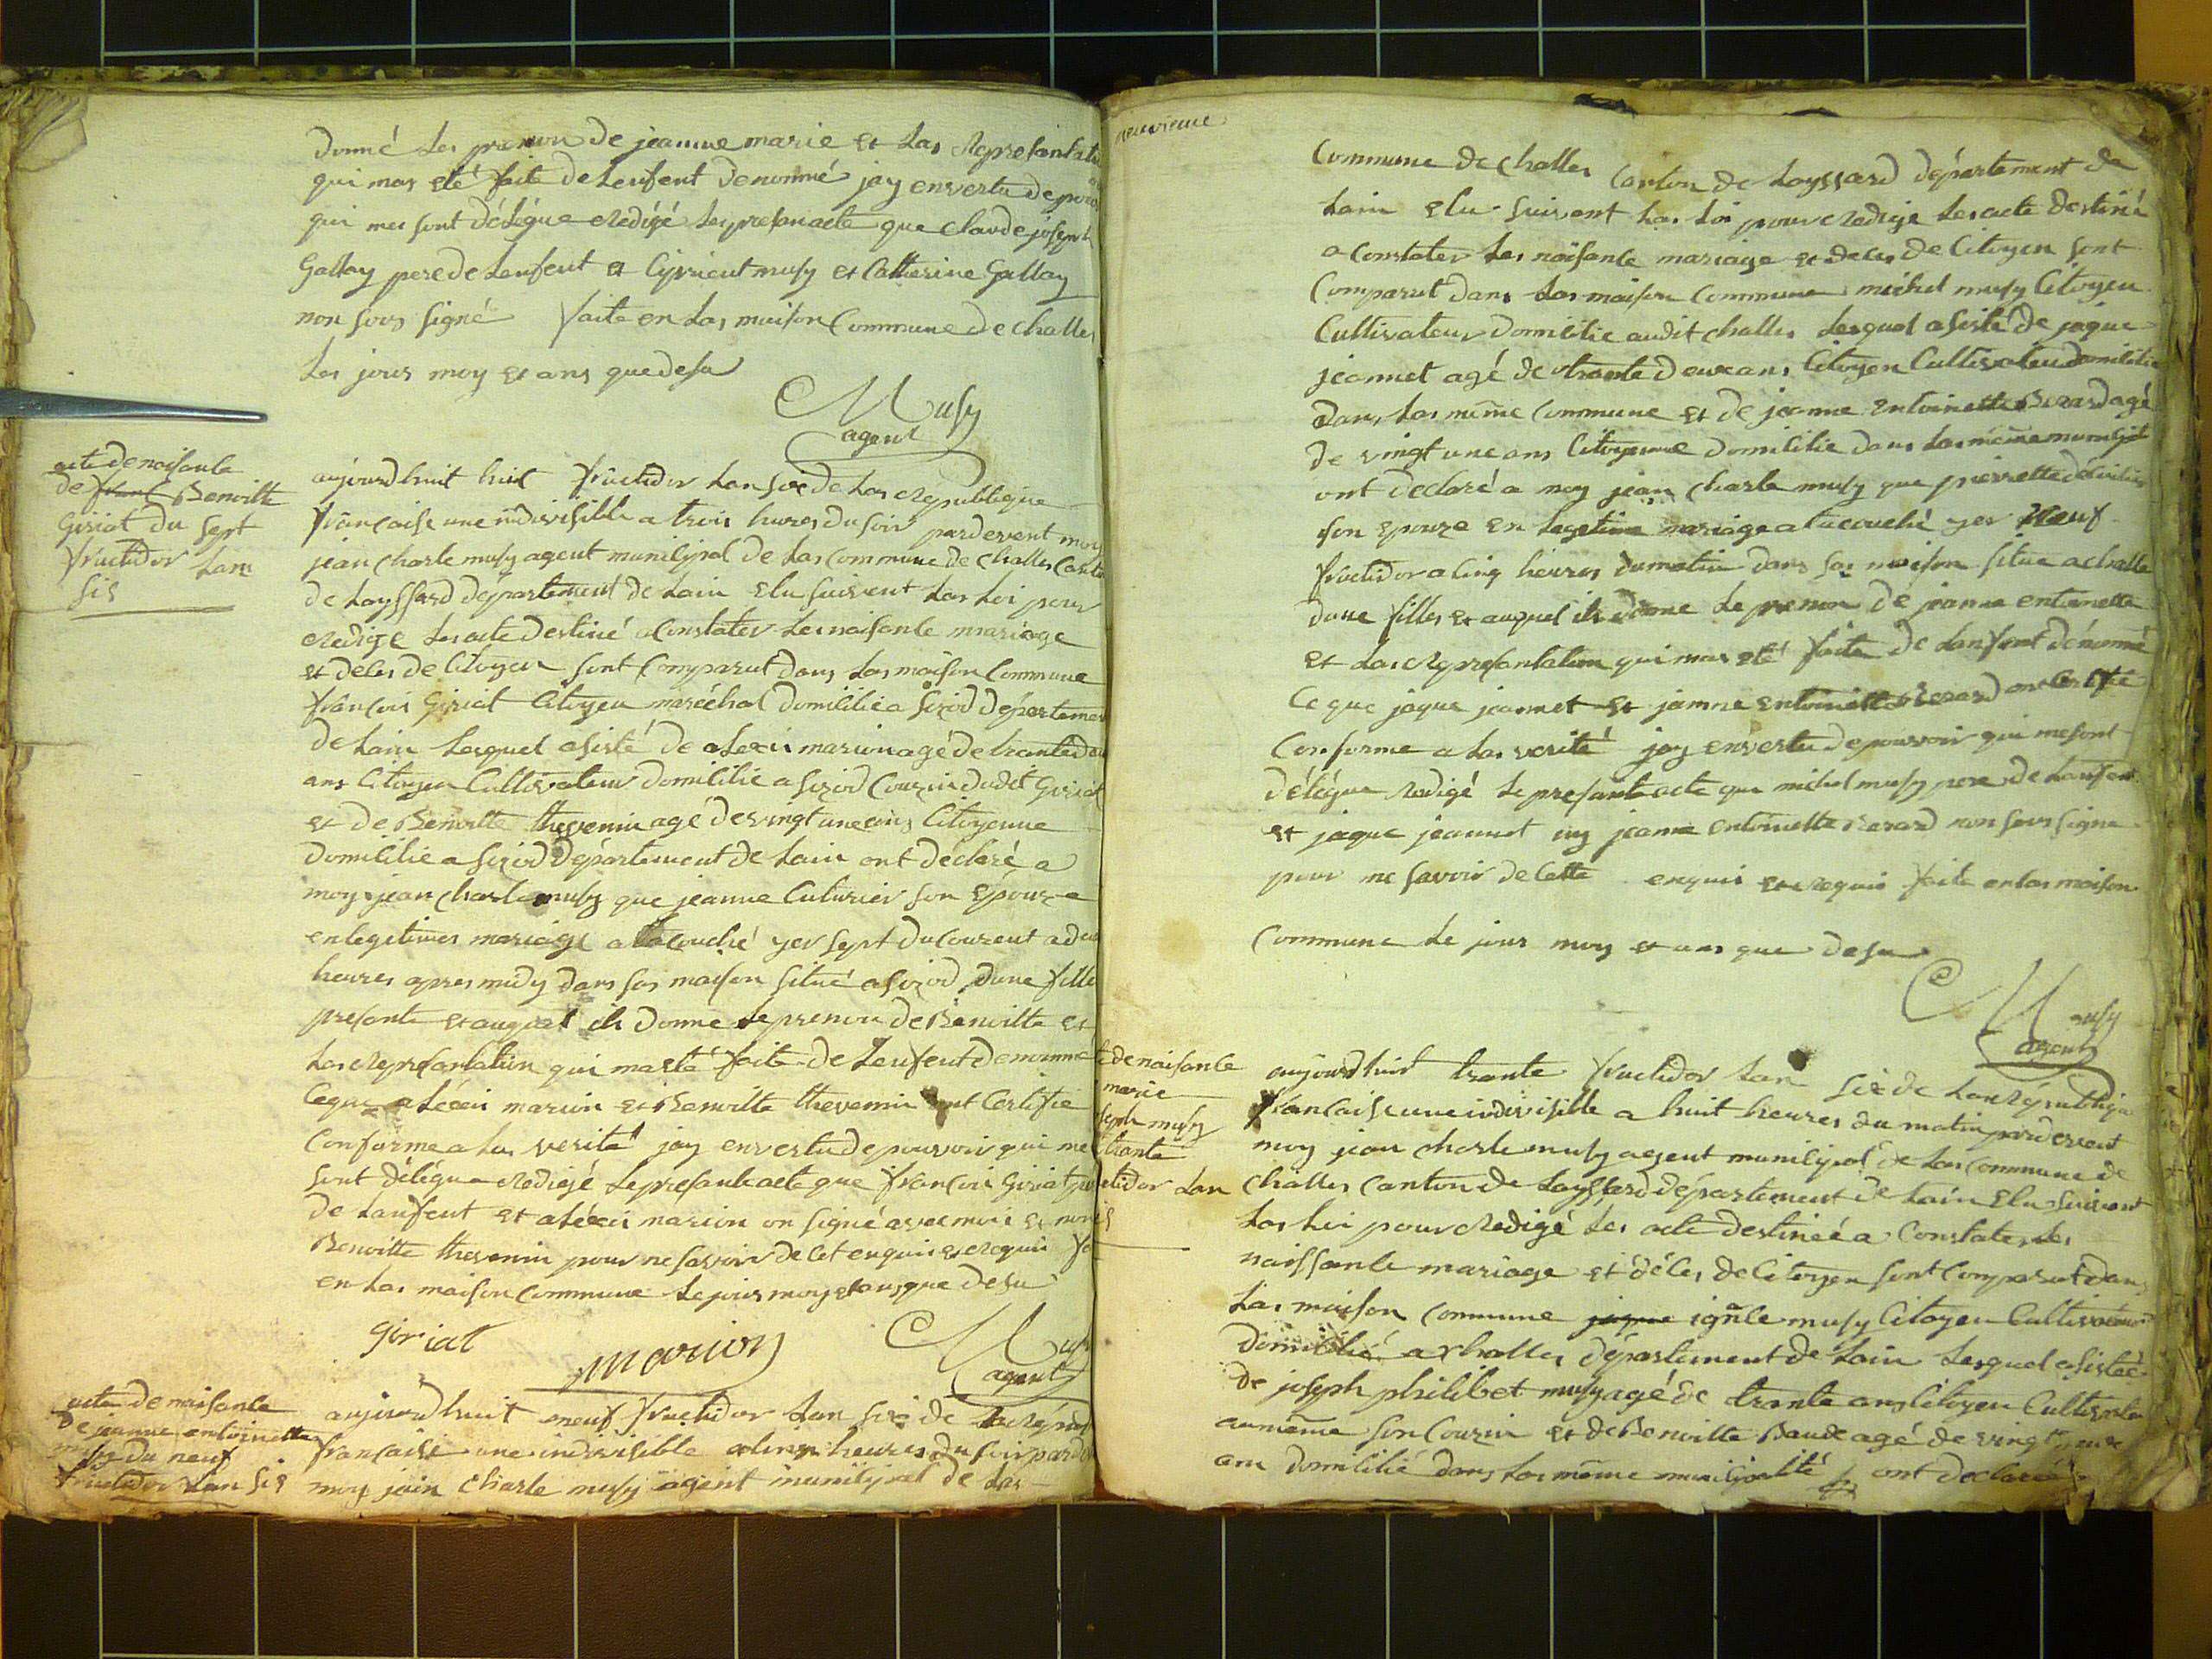 donné Les prenon de jeanne marie et Las Represantati
qui mas eté faite de Lenfent denonmé jay envertu de pouv
qui me sont délégue Redigé Les presan acte que Claude joseph
Gallay pere de Lenfent et Ciprient musy et Catherine Gallay
non sous signé faite en Las maison Commune de Challes
Les jours moy et ans que desu
Musy
agent
acte de naisance
de Benoitte
Giriat du sept
fructidor Lan
sis
aujourdhuit huit fructidor Lan sixe de Las Republique
française une indivisible a trois heures du soir pardevent moy
jean Charle musy agent municipal de Las Commune de Challes Canto
de Layssard département de Lain elu suivent Las Loi pour
Redige Les acte destiné a Constater Les naisance mariage
et déces de Citoyen sont Comparut dans Las maison Commune
françois Giriat Citoyen maréchal domicilie a Sizod départemen
de Lain Lesquel asisté de alexis marion agé de trante deu
ans Citoyen Cultivateur domicilié a Sizod Couzin dudit Giriat
et de Benoitte thevenin agé de vingt une ans Citoyenne
domicilie a Sizod département de Lain ont déclaré a
moy jean Charle musy que jeanne Cuturier son épouze
en legitimes mariage a acouché yer sept du courent a deu
heures apres midy dans sas maison situé a Sizod dune fille
presante et auquel ils donne Le prenon de Benoitte et
Las Represantation qui mas eté faite de Lenfent denonmé
Ceque alexis marion et Benoitte thevenin ont Certifié
Conforme a Las verité jay envertu de pouvoir qui me
sont délégue Redigé Le presante acte que françois Giriat per
de Lanfent et aléxis marion on signé avec moi et non
Benoitte thevenin pour ne savoir de Cet enquis et Requis fe
en Las maison Commune Le jours moy et ans que desu
giriat
marion
Musy
agent
acte de naisance
de jeanne entoinette
musy du neuf
fructidor Lan sis
aujourdhuit neuf fructidor Lan sixe de La Répub
française une indivisible a cinq heures du soir parde
moy jean Charle musy agent municipal de Las
neuvieme
Commune de Challes Canton de Layssard département de
Lain elu suivent Las Loi pour Redige Les acte destiné
a Constater Les naisance mariage et deces de Citoyen sont
Comparut dans Las maison Commune michel musy Citoyen
Cultivateur domicilie audit Challes Lesquel asisté de jaque
jeannet agé de trante deux ans Citoyen Cultivateur domicilie
dans Las même Commune et de jeanne entoinette Berard agé
de vingt une ans Citoyenne domicilie dans Las même municipal
ont declaré a moy jean Charle musy que pierrette
son epouze en Legetime mariage a acouché yer Neuf
fructidor a cinq heures du matin dans sas maison situe a Challe
dune filles et auquel ils donne Le prenon de jeanne entoinette
et Las Represantation qui mas eté faite de Lanfent dénonmé
Ce que jaque jeannet et jeanne entoinette Berard ont Certifié
Conforme a Las verité jay envertu de pouvoir qui me sont
délégue Redigé Le presante acte que michel musy pere de Lanfent
et jaque jeannet ny jeanne entoinette Berard non sous signe
pour ne savoir de Cette enquis et Requis faite en Las maison
Commune Le jours moy et ans que desu
Musy
agent
te de naisance
marie
seph musy
trante
ctidor Lan
s
aujourdhuit trante fructidor Lan sixe de Las Républiqu
française une indivisible a huit heures du matin pardevent
moy jean Charle musy agent municipal de Las Commune de
Challes Canton de Layssard département de Lain elu suivent
Las Loi pour Redigé Les acte destinéé a Constater Les
naissance mariage et déces de Citoyen sont Comparut dans
Las maison Commune jaque ignace musy Citoyen Cultivateur
domicilié a Challes département de Lain Lesquel asisté
de joseph philibet musy agé de trante ans Citoyen Cultivateu
au même son Couzin et de Benoitte Baude agé de vingt neuf
ans domicilié dans Las même municipalité ont declaré